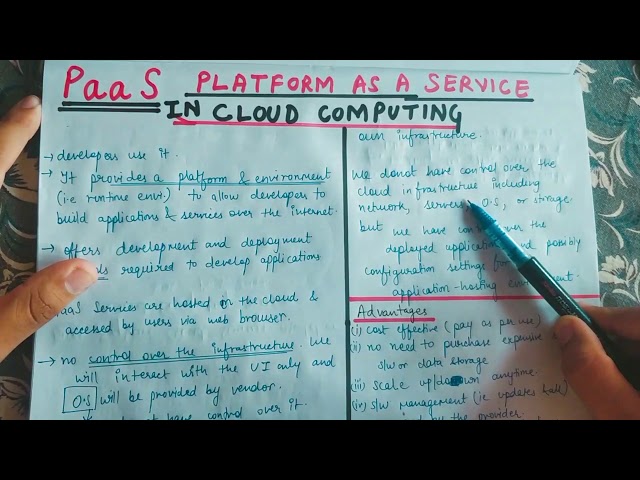 PaaS PLATFORM AS A SERVICE
IN CLOUD COMPUTING
→ developers use it.
→ It provides a platform & environment
(i.e runtime envi.) to allow developers to
build applications & services over the internet.
→ offers development and deployment
required to develop applications
Services are hosted on the cloud &
accessed by users via web browser.
→ no control over the infrastructure. We
will interact with the UI only and
O.S will be provided by vendor.
have control over it.
own infrastructure.
We donot have control over the
cloud infrastructure including
network, servers, O.S, or storage
but we have over the
deployed and possibly
configuration settings
application-hosting
Advantages
(i) cost effective (pay as per use)
(ii) no need to purchase
s/w or data storage
(iii) scale anytime.
(iv) s/w management (ie updates
by the provider.